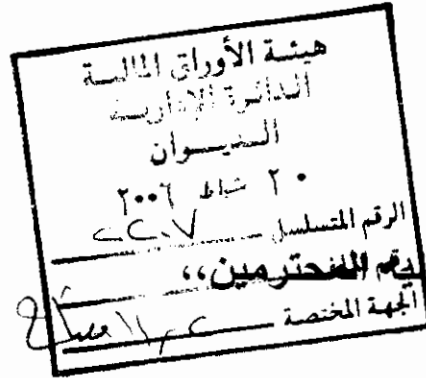 هيئة الأوراق المالية
الدائرة الإدارية
الديوان
٢٠ شباط ٢٠٠٦
الرقم المتسلسل ٢٢٠٧
رقم الملف المحترمين،،
الجهة المختصة